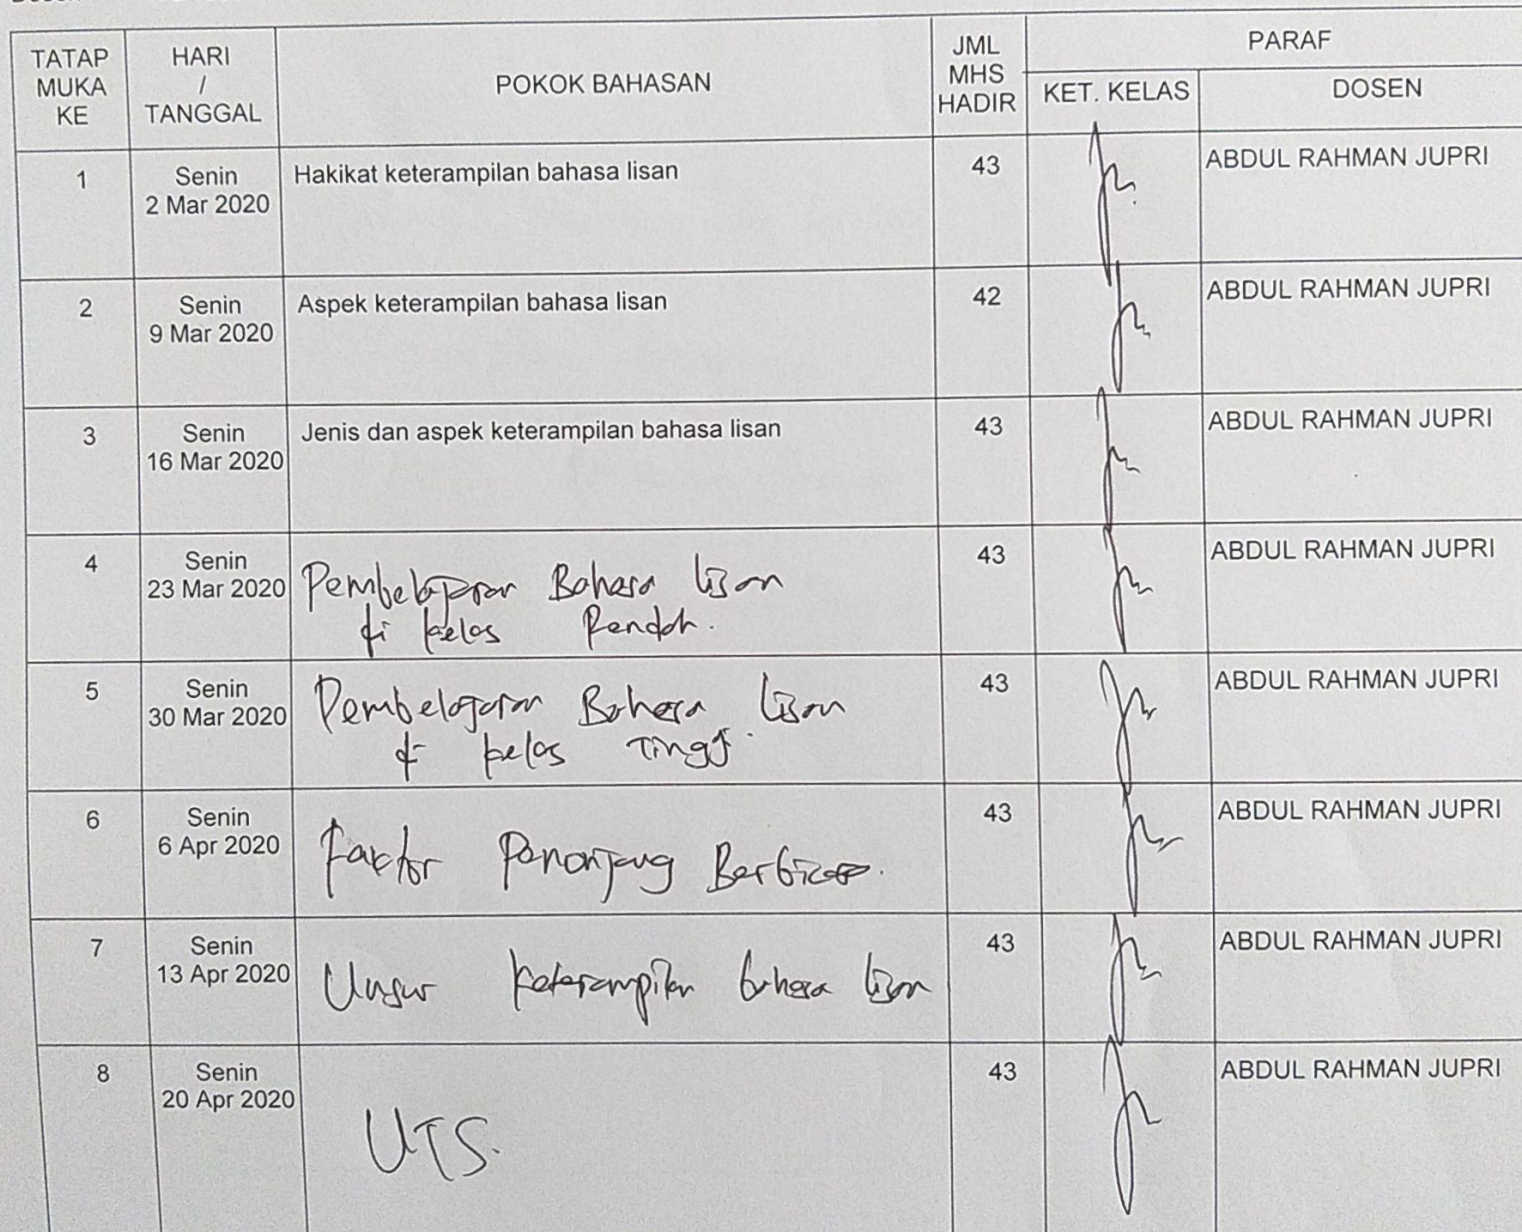 TATAP MUKA KE
HARI / TANGGAL
POKOK BAHASAN
JML MHS HADIR
PARAF
KET. KELAS
DOSEN
1
Senin
2 Mar 2020
Hakikat keterampilan bahasa lisan
43
ABDUL RAHMAN JUPRI
2
Senin
9 Mar 2020
Aspek keterampilan bahasa lisan
42
ABDUL RAHMAN JUPRI
3
Senin
16 Mar 2020
Jenis dan aspek keterampilan bahasa lisan
43
ABDUL RAHMAN JUPRI
4
Senin
23 Mar 2020
Pembelajaran Bahasa lisan
di kelas Rendah.
43
ABDUL RAHMAN JUPRI
5
Senin
30 Mar 2020
Pembelajaran Bahasa lisan
di kelas Tinggi.
43
ABDUL RAHMAN JUPRI
6
Senin
6 Apr 2020
Faktor Penunjang Berbicara.
43
ABDUL RAHMAN JUPRI
7
Senin
13 Apr 2020
Unsur keterampilan bahasa lisan
43
ABDUL RAHMAN JUPRI
8
Senin
20 Apr 2020
UTS.
43
ABDUL RAHMAN JUPRI